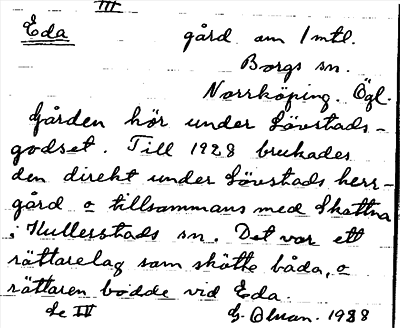 III
Eda gård om 1 mtl.
Borgs sn.
Norrköping. Ögl.
Gården hör under Lövstads-
godset. Till 1928 brukades
den direkt under Lövstads herr-
gård o tillsammans med Skattna
i Kullerstads sn. Det var ett
rättarelag som skötte båda, o
rättaren bodde vid Eda.
Se IV G. Olman. 1988